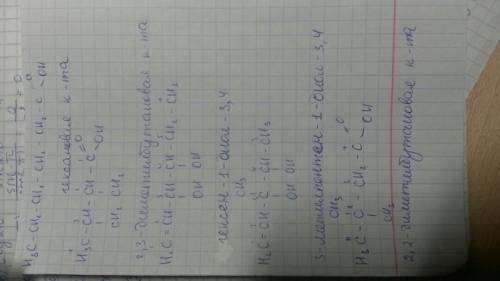 H₃C-CH₂-CH₂-CH₂-CH₂-C
O
OH
гексановая к-та
H₃C-CH-CH-C
O
OH
CH₃ CH₃
2,3-диметилбутановая к-та
H₂C=CH-CH-CH-CH₂-CH₃
OH OH
гексен-1-диол-3,4
CH₃
H₂C=CH-C-CH-CH₃
OH OH
3-метилпентен-1-диол-3,4
CH₃
H₃C-C-CH₂-C
O
OH
CH₃
2,2-диметилбутановая к-та